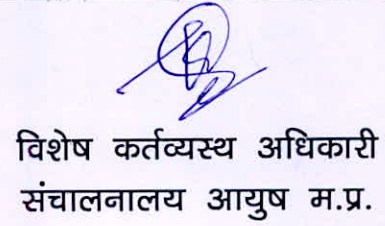 विशेष कर्तव्यस्थ अधिकारी
संचालनालय आयुष म.प्र.